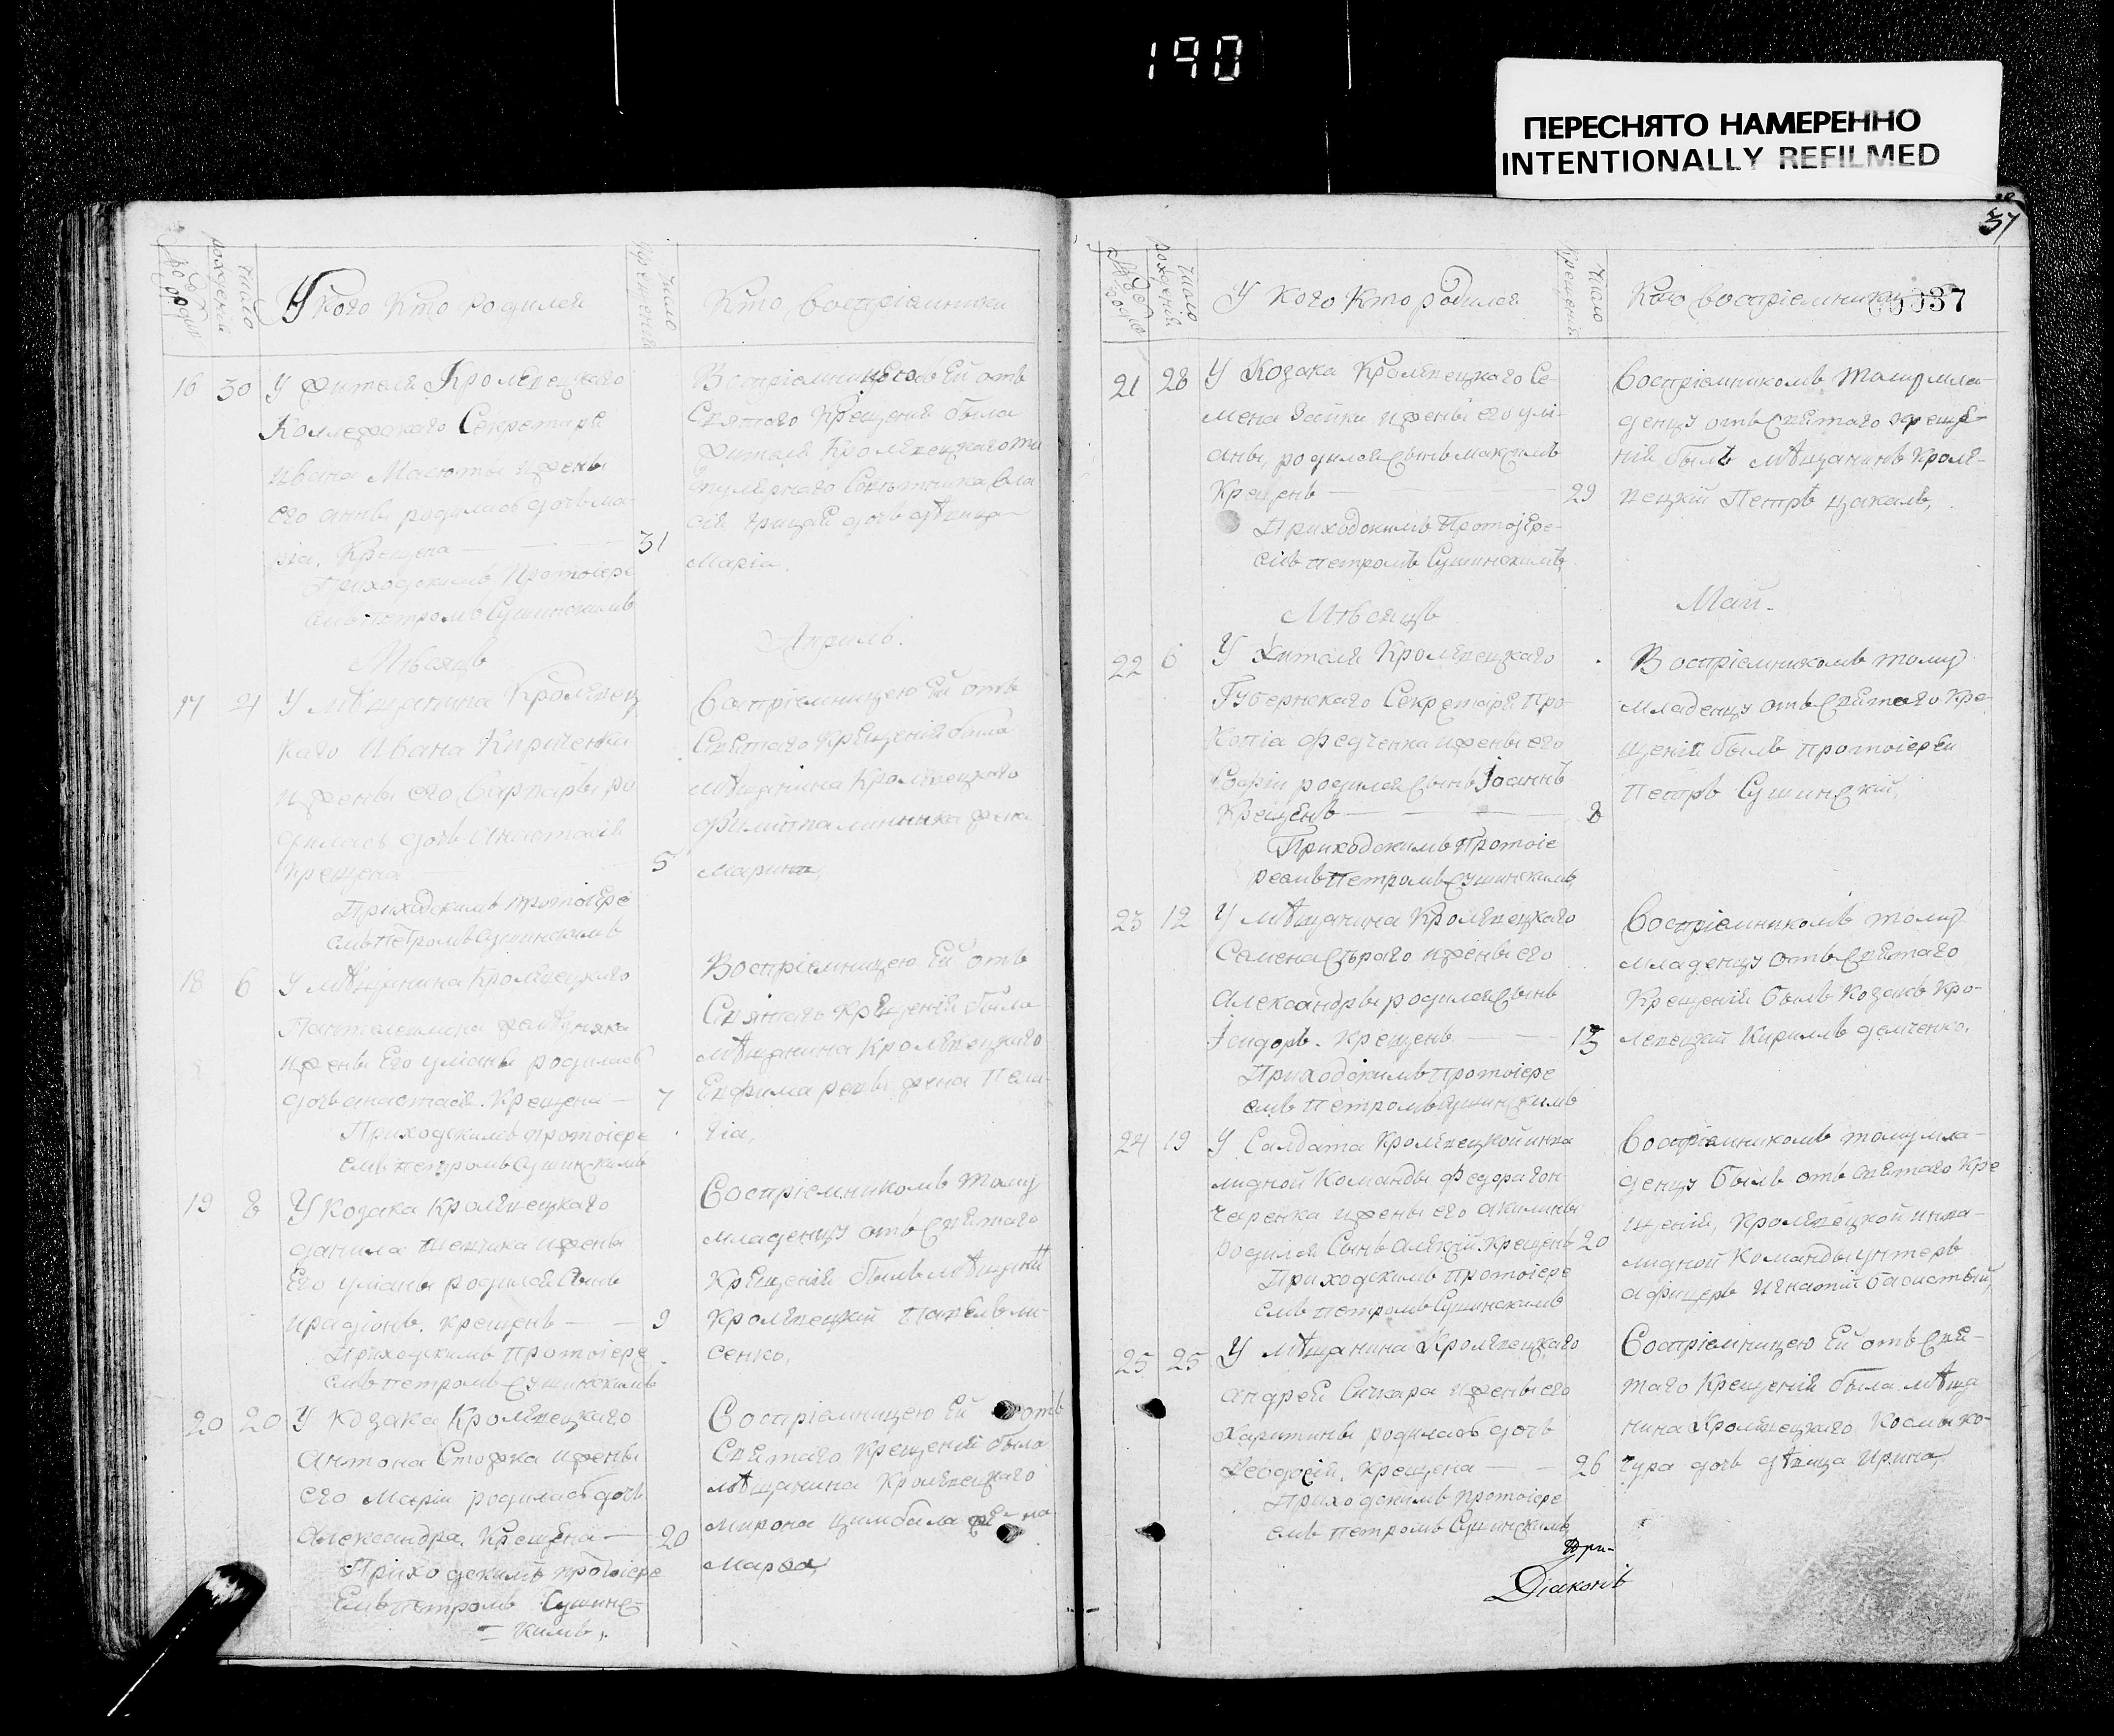 190
ПЕРЕСНЯТО НАМЕРЕННО
INTENTIONALLY REFILMED
37
Число рожденій
Число крещенія
У кого Кто родился
Кто воспріемники
16 30 У жителя Кролевецкаго
Коллежскаго Секретаря
Ивана Масюты и жены
его анны родилась дочь ма-
рія. Крещена — 31
Приходскимъ Протоіере
емъ петромъ Сушинскимъ
Воспріемницею Ей отъ
Святаго Крещенія была
жителя Кролевецкаго ти
тулярнаго Совѣтника Вла
сія дочь дѣвица
Марія.
Мѣсяцъ
Априль.
17 4 У мѣщанина Кролевец
каго Ивана Кириченка
и жены его Варвары ро
дилась дочь анастасія
Крещена 5
Приходскимъ протоіере
емъ петромъ Сушинскимъ
Воспріемницею Ей отъ
Святаго Крещенія была
мѣщанина Кролевецкаго
жена
Марина,
18 6 У мѣщанина Кролевецкаго
Пантелеимона
и жены Его уліаны родилась
дочь анастасія. Крещена — 7
Приходскимъ протоіере
емъ петромъ Сушинскимъ
Воспріемницею Ей отъ
Святаго Крещенія была
мѣщанина Кролевецкаго
Евфима жена Пела-
гіа,
19 8 У Козака Кролевецкаго
данила Шевчика и жены
Его уліаны родился Сынъ
иродіонъ. Крещенъ — — 9
Приходскимъ Протоіере
емъ петромъ Сушинскимъ
Воспріемникомъ тому
младенцу отъ Святаго
Крещенія былъ мѣщанинъ
Кролевецкій Павелъ ли-
сенко,
20 20 У козака Кролевецкаго
Антона Стожка и жены
его Маріи родилась дочь
Александра. Крещена — 20
Приходскимъ протоіере
Емъ петромъ Сушинс-
= кимъ,
Воспріемницею Ей отъ
Святаго Крещенія была
мѣщанина Кролевецкаго
мирона цимбала жена
Марфа,
00037
Число рожденій
Число Крещенія
У кого Кто родился
Кто воспріемники
21 28 У Козака Кролевецкаго Се-
мена Зайки и жены его улі-
аны, родился Сынъ максимъ
Крещенъ — 29
Приходскимъ Протоіере-
емъ петромъ Сушинскимъ,
Воспріемникомъ тому мла-
денцу отъ Святаго креще-
нія былъ мѣщанинъ Кроле-
вецкій Петръ цакалъ,
Мѣсяцъ
Май.
22 6 У жителя Кролевецкаго
Губернскаго Секретаря Про-
копіа федченка и жены его
Софіи родился Сынъ Іоаннъ
Крещенъ — — — 8
Приходскимъ Протоіе
реемъ Петромъ Сушинскимъ,
Воспріемникомъ тому
младенцу отъ Святаго Кре-
щенія былъ протоіерей
петръ Сушинскій,
23 12 У мѣщанина Кролевецкаго
Семена Сѣраго и жены его
Александры родился Сынъ
Ісидоръ. Крещенъ — — 13
Приходскимъ протоіере
емъ Петромъ Сушинскимъ
Воспріемникомъ тому
младенцу отъ Святаго
Крещенія былъ Козакъ Кро-
левецкій Кирилъ демченко.
24 19 У Салдата Кролевецкой инва
лидной Команды Федора гон-
чаренка и жены его акилины
родился Сынъ Алексій. Крещенъ 20
Приходскимъ протоіере
емъ петромъ Сушинскимъ
Воспріемникомъ тому мла-
денцу былъ отъ святаго Кре
щенія, Кролевецкой инва-
лидной Команды унтеръ
афицеръ Игнатій басистый,
25 25 У мѣщанина Кролевецкаго
андрея Сичкара и жены его
Харитины родилась дочь
Феодосія. Крещена — — 26
Приходскимъ протоіере
емъ петромъ Сушинскимъ
Воспріемницею Ей отъ Свя-
таго Крещенія была мѣща
нина Кролевецкаго Космы ко-
чура дочь дѣвица Ирина,
Діаконъ